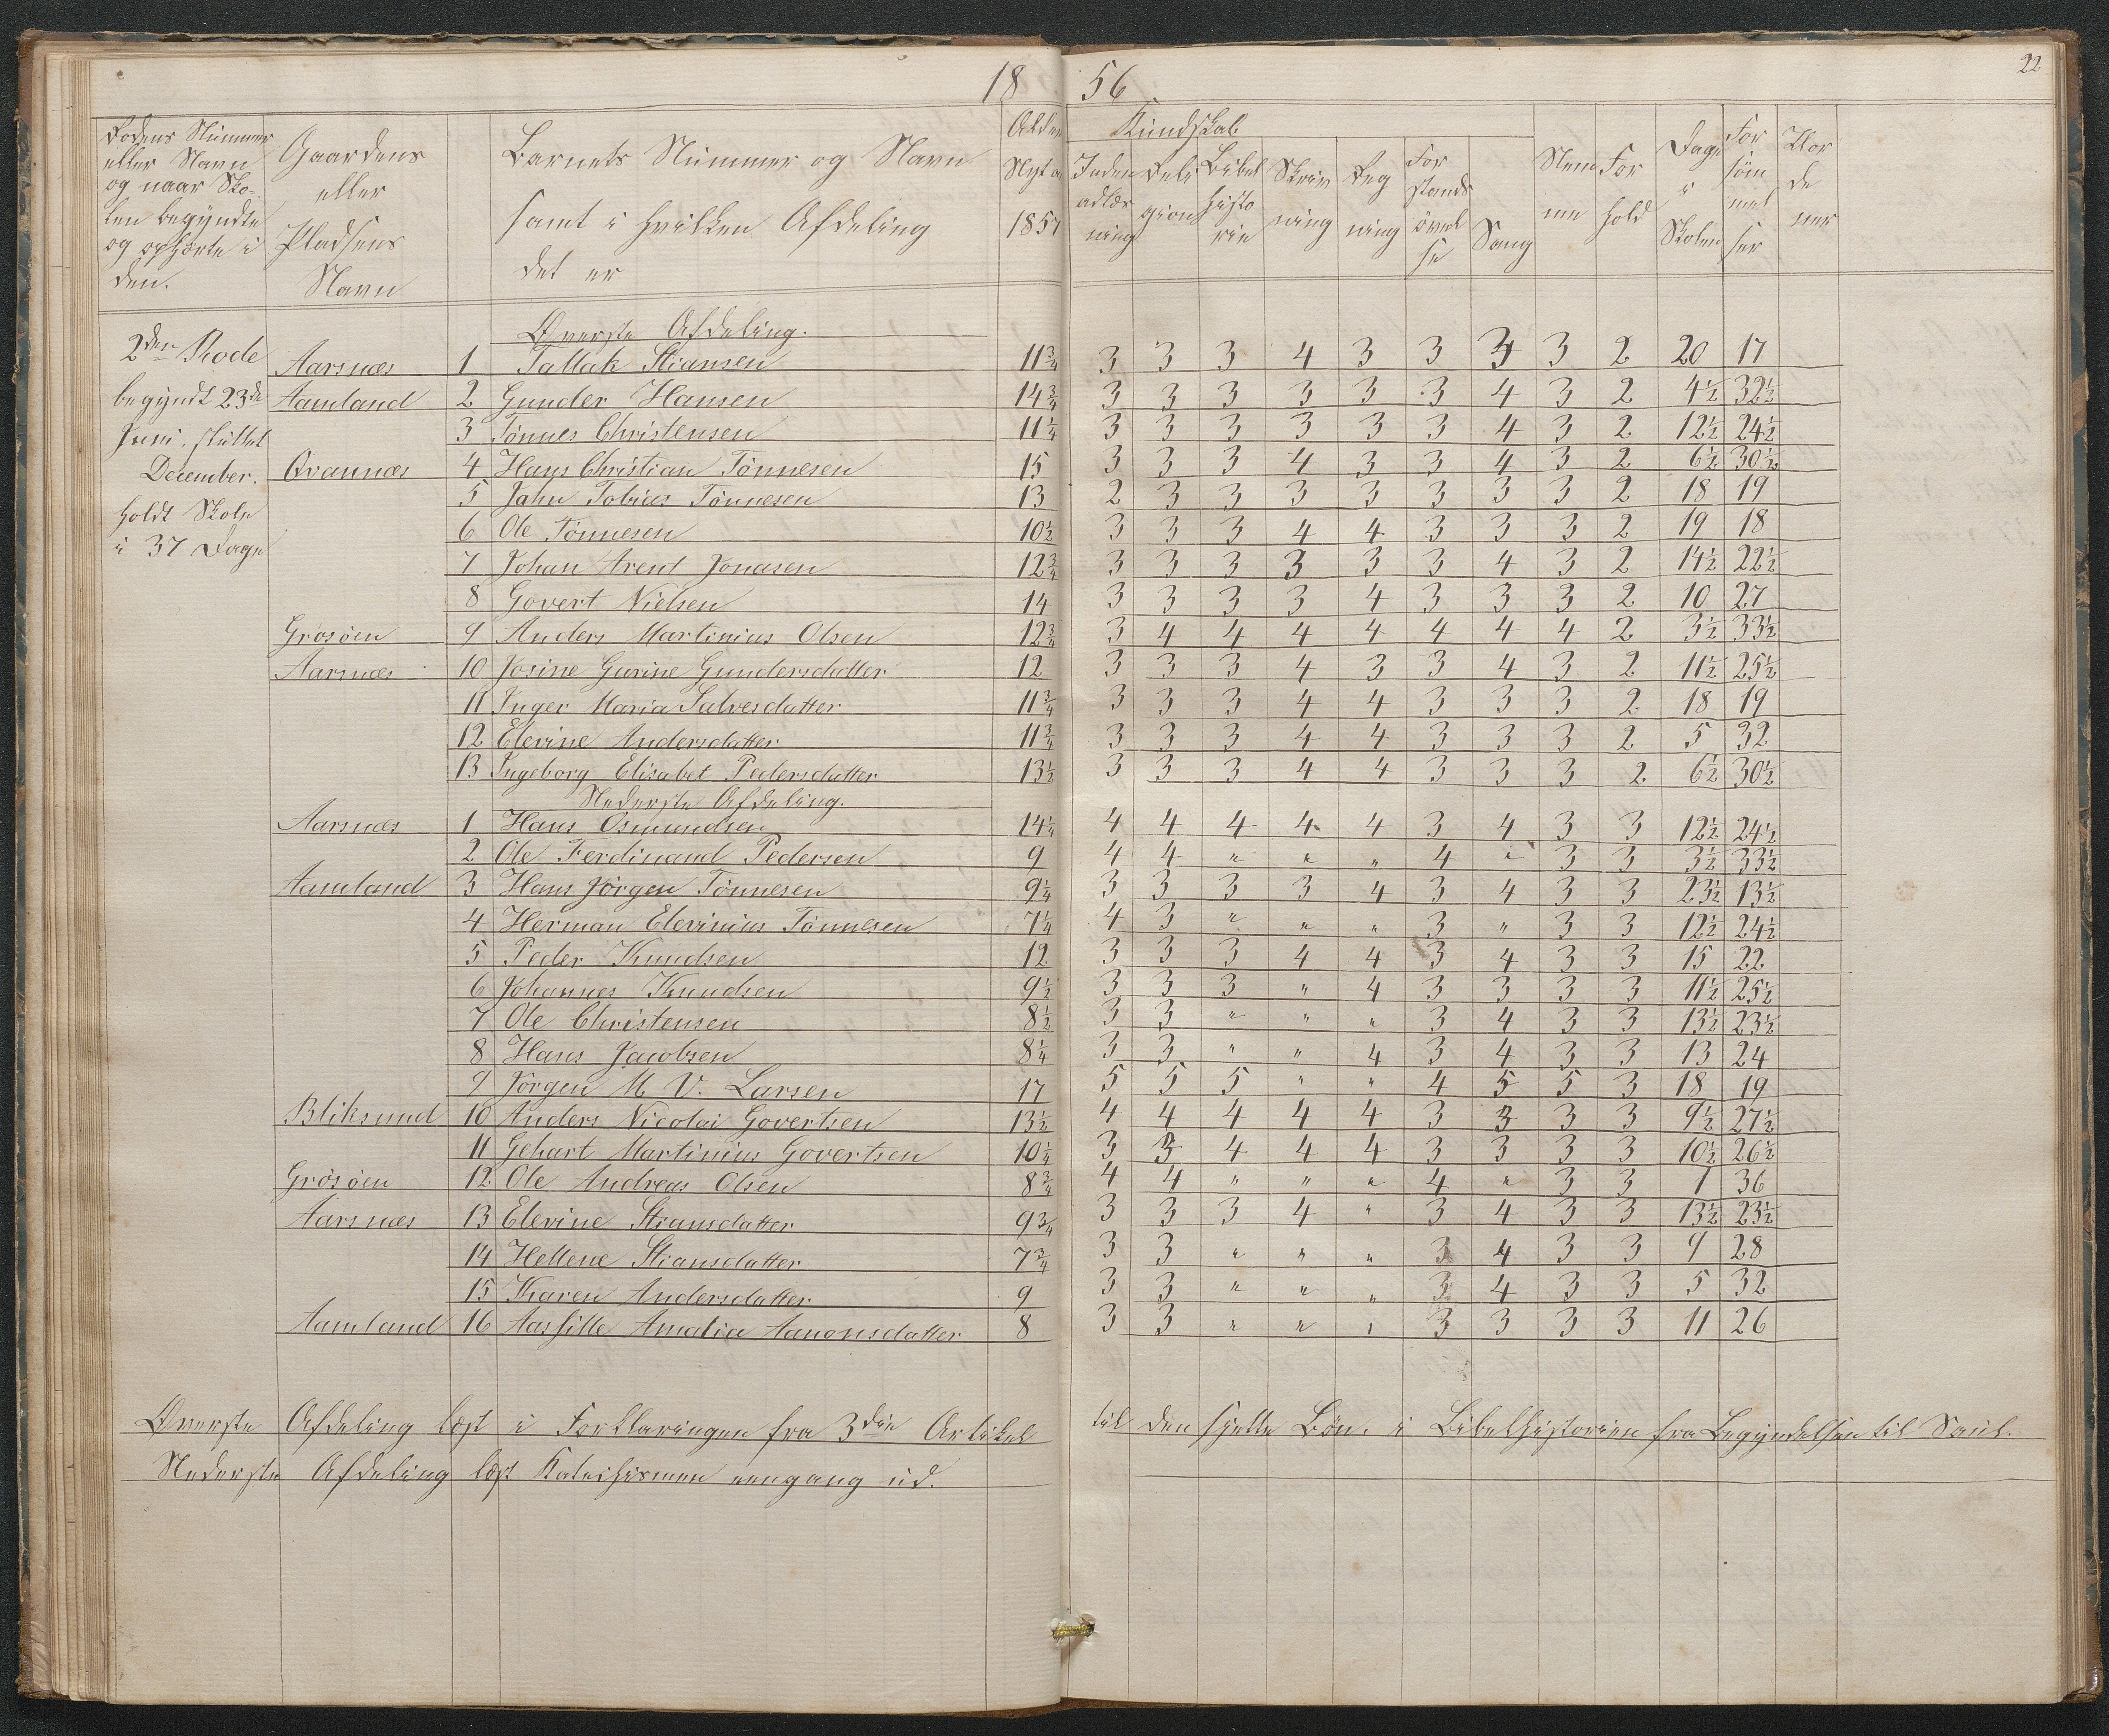 18 56
22
Rodens Nummer eller Navn og naar Sko- len begyndte og ophørte i den.
Gaardens eller Pladsens Navn
Barnets Nummer og Navn samt i hvilken Afdeling det er
Alder Nyt 1857
Kundskab
Inden adlæs ning
Reli gion
Bibel histo rie
Skriv ning
Reg ning
For stands övel se
Sang
Nem me
For hold
Dage i Skolen
For söm mel ser
Vor de rer
Øverste Afdeling.
2den Rode
begyndt 23de
Juni. sluttet
December.
holdt Skole
i 37 Dage
Aarsnæs 1 Tallak Stiansen 11 3/4 3 3 3 4 3 3 3 3 2 20 17
Aamland 2 Gunder Hansen 14 3/4 3 3 3 3 3 3 4 3 2 4 1/2 32 1/2
3 Tönnes Christensen 11 1/4 3 3 3 3 3 3 4 3 2 12 1/2 24 1/2
Qvannæs 4 Hans Christian Tönnesen 15 3 3 3 4 3 3 4 3 2 6 1/2 30 1/2
5 Jahn Tobias Tönnesen 13 2 3 3 3 3 3 3 3 2 18 19
6 Ole Tönnesen 10 1/2 3 3 3 4 4 3 3 3 2 19 18
7 Johan Arent Jonasen 12 3/4 3 3 3 3 3 3 4 3 2 14 1/2 22 1/2
8 Govert Nielsen 14 3 3 3 3 4 3 3 3 2 10 27
Grösöen 9 Anders Martinius Olsen 12 3/4 3 4 4 4 4 4 4 4 2 3 1/2 33 1/2
Aarsnæs 10 Josine Gurine Gundersdatter 12 3 3 3 4 3 3 4 3 2 11 1/2 25 1/2
11 Inger Maria Salvesdatter 11 3/4 3 3 3 4 4 3 3 3 2 18 19
12 Elevine Andersdatter 11 3/4 3 3 3 4 4 3 3 3 2 5 32
13 Ingeborg Elisabet Pedersdatter 13 1/2 3 3 3 4 4 3 3 3 2 6 1/2 30 1/2
Nederste Afdeling.
Aarsnæs 1 Hans Osmundsen 14 1/4 4 4 4 4 4 3 4 3 3 12 1/2 24 1/2
2 Ole Ferdinand Pedersen 9 4 4 " " " 4 " 3 3 3 1/2 33 1/2
Aamland 3 Hans Jörgen Tönnesen 9 1/4 3 3 3 3 4 3 4 3 3 23 1/2 13 1/2
4 Herman Elevinius Tönnesen 7 1/4 4 3 " " " 3 " 3 3 12 1/2 24 1/2
5 Peder Knudsen 12 3 3 3 4 4 3 4 3 3 15 22
6 Johannes Knudsen 9 1/2 3 3 3 " 4 3 3 3 3 11 1/2 25 1/2
7 Ole Christensen 8 1/2 3 3 " " " 3 4 3 3 13 1/2 23 1/2
8 Hans Jacobsen 8 1/4 3 3 " " 4 3 4 3 3 13 24
9 Jörgen M V. Larsen 17 5 5 5 " " 4 5 5 3 18 19
Bliksund 10 Anders Nicolai Govertsen 13 1/2 4 4 4 4 4 3 3 3 3 9 1/2 27 1/2
11 Gehart Martinius Govertsen 10 1/4 3 3 4 4 4 3 3 3 3 10 1/2 26 1/2
Grösöen 12 Ole Andreas Olsen 8 3/4 4 4 " " " 4 " 3 3 1 36
Aarsnæs 13 Elevine Stiansdatter 9 3/4 3 3 3 4 " 3 4 3 3 13 1/2 23 1/2
14 Hellene Stiansdatter 7 3/4 3 3 " " " 3 4 3 3 9 28
15 Karen Andersdatter 9 3 3 " " " 3 4 3 3 5 32
Aamland 16 Aasille Amalia Aanonsdatter 8 3 3 " " " 3 3 3 3 11 26
Øverste Afdeling læst i Forklaringen fra 3die Artikel til den sjette Bön. i Bibelhistorien fra Begyndelsen til Saul.
Nederste Afdeling læst Katechismen eengang ud.